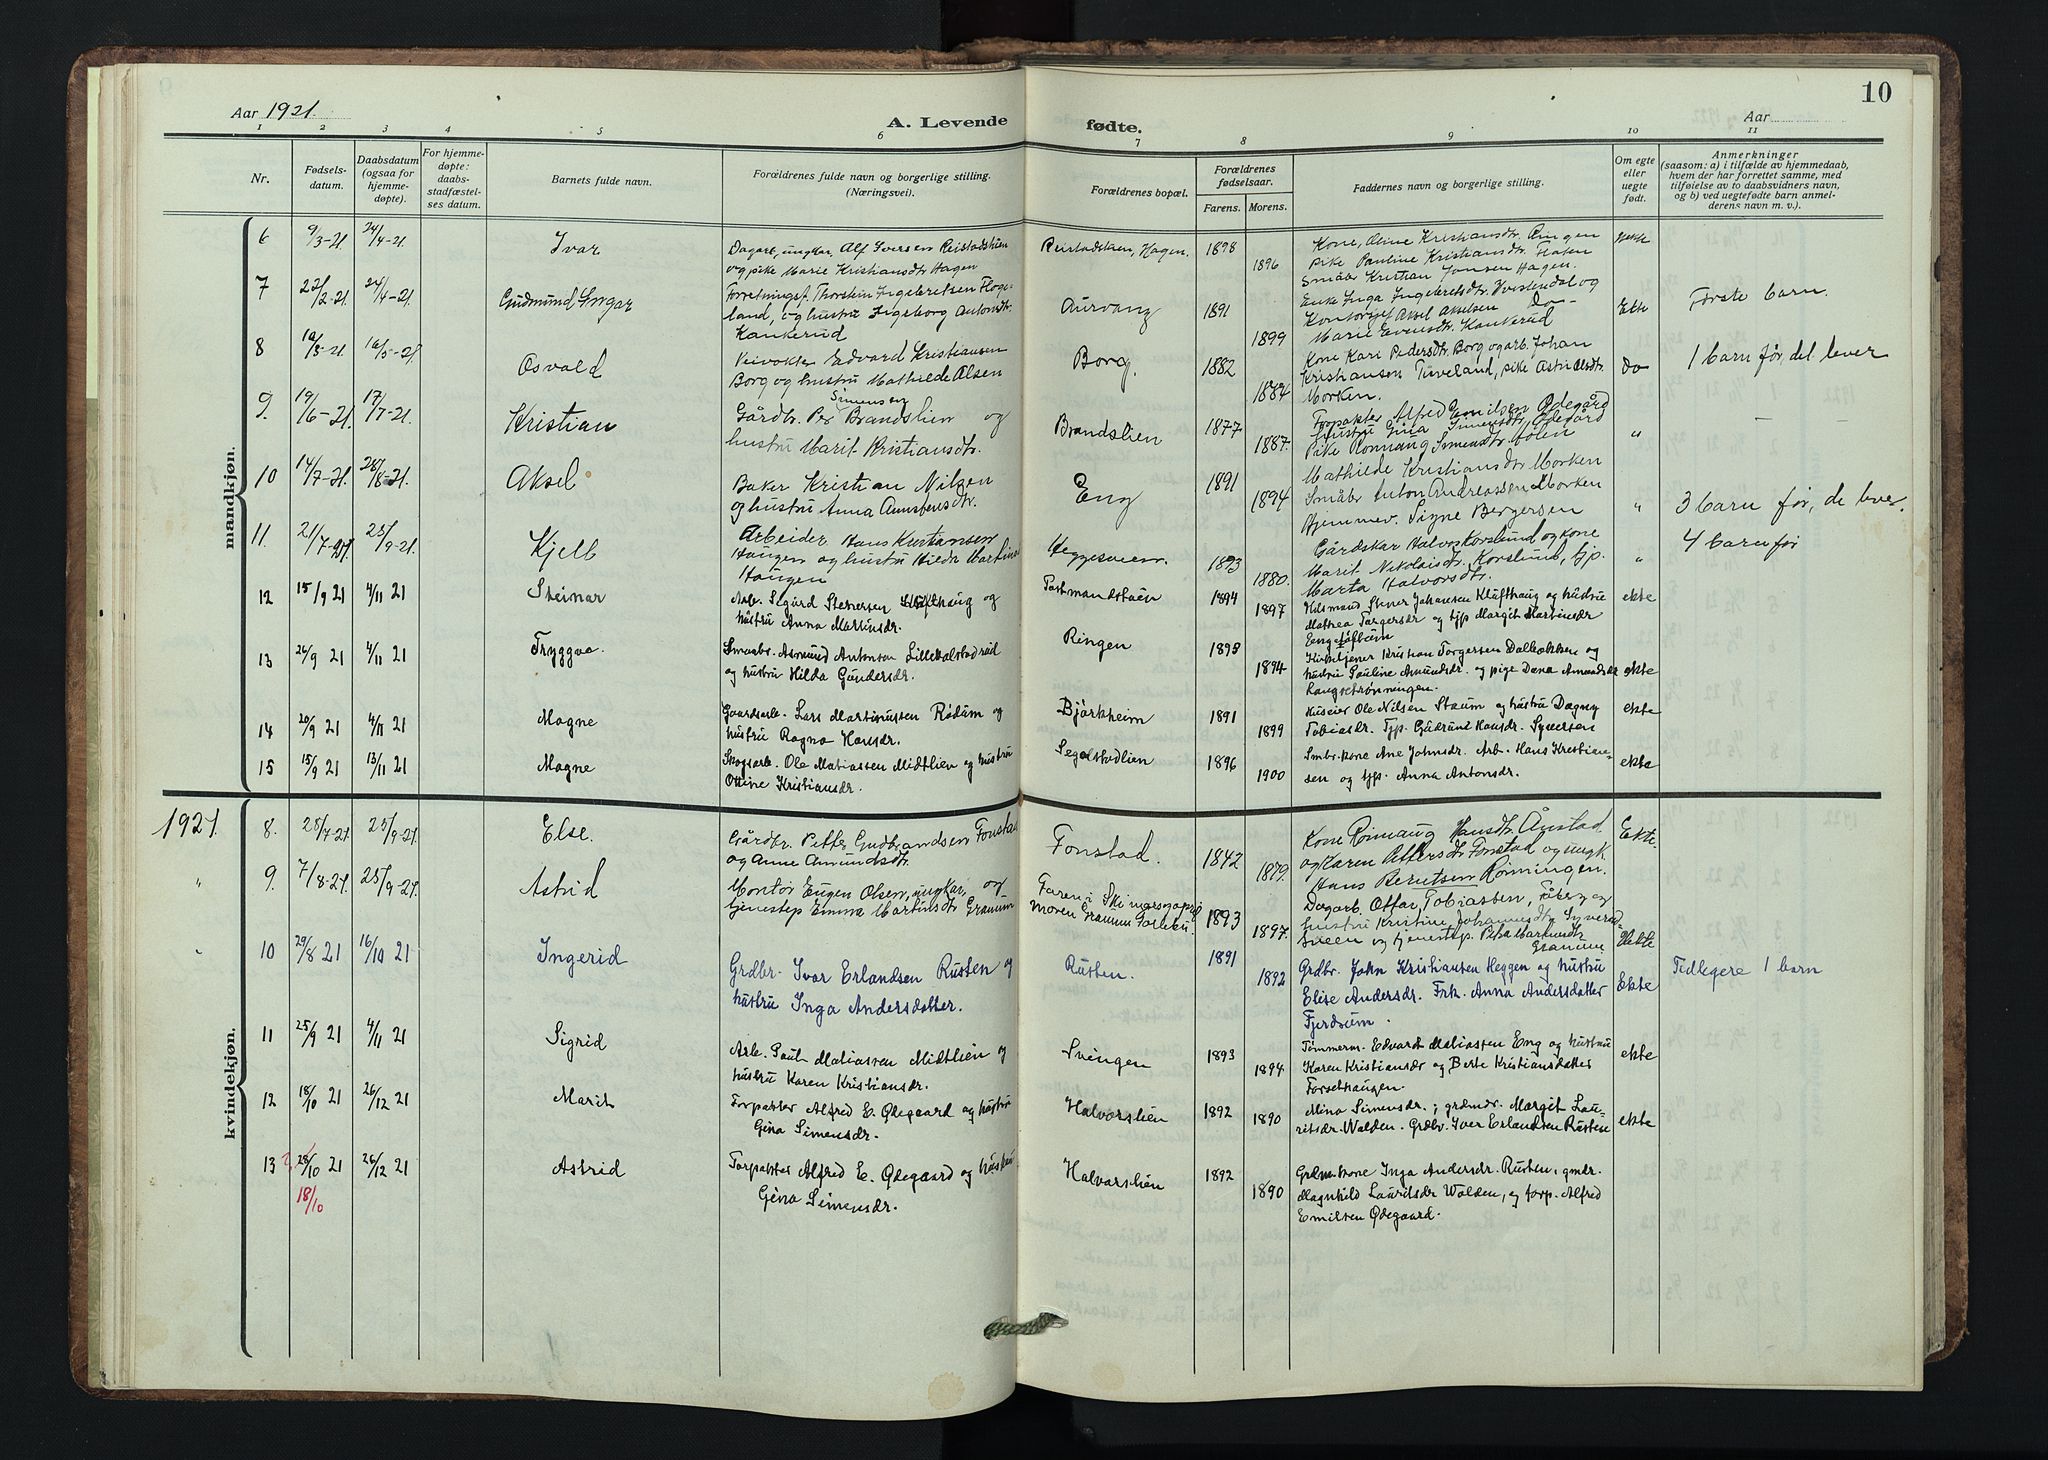 Aar 1921.
A. Levende fødte.
Aar
10
1 2 3 4 5 6 7 8 9 10 11
Nr.
Fødsels-
datum.
Daabsdatum
(ogsaa for
hjemme-
døpte).
For hjemme-
døpte:
daabs-
stadfæstel-
ses datum.
Barnets fulde navn.
Forældrenes fulde navn og borgerlige stilling.
(Næringsvei).
Forældrenes bopæl.
Forældrenes
fødselsaar.
Farens. Morens.
Faddernes navn og borgerlige stilling.
Om egte
eller
uegte
født.
Anmerkninger
(saasom: a) i tilfælde av hjemmedaab,
hvem der har forrettet samme, med
tilføielse av to daabsvidners navn,
og b) ved uegtefødte barn anmel-
derens navn m. v.).
mandkjøn.
6 9/3-21. 24/4-21. Ivar
Dagarb, ungkar, Alf Iversen Reistadstuen
og pike Marie Kristiansdtr Hagen
Reistadstuen, Hagen. 1898 1896
Kone, Oline Kristiansdtr. Ringen
pike Pauline Kristiansdtr. Flaten
Småbr Kristian Jonsen Hagen.
Uekte
7 22/2-21. 24/4-21. Gudmund Ingar
Forretningsf. Thorstein Ingebretsen Hoge-
land, og hustru Ingeborg Antonsdtr.
Kankerud
Aurvang 1891 1899
Enke Inga Ingebretsdtr. og
Kontorist Aksel Akselsen Do-
Marie Evensdtr. Kankerud
Ekte Første barn.
8 10/3-21. 16/5-21. Osvald
Veivokter Edvard Kristiansen
Borg og hustru Mathilde Olsen
Borg. 1882 1884
Kone Kari Pedersdtr. Borg og arb. Johan
Kristiansen Tuveland, pike Astri Olsdtr.
Morken.
Do 1 barn før, det lever
9. 19/6-21. 17/7-21. Kristian
Simensen
Gårdbr. Per Brandslien og
hustru Marit Kristiansdtr.
Brandslien 1877 1887.
Forpakter Alfred Emilsen Ødegård
hustru Gina Simensdtr. Ødegård
Pike Ronnaug Simensdtr. Holen
" -
10 14/7-21. 28/8-21. Aksel
Baker Kristian Nilsen
og hustru Anna Amsbensdtr.
Eng 1891 1894
Mathilde Kristiansdtr Morken
Småbr Anton Andreassen Morken
Hjemmev. Signe Bergersen
" 3 barn før, de lever.
11. 21/7-21. 25/9-21. Kjell
Arbeider Hans Kristiansen
Haugen og hustru Hilda Martine
Haugen
Heggesveen. 1893 1880.
Gårdskar Halvor Korslund og kone
Marit Nikolaisdtr. Korslund, tjp.
Marta Halvorsdtr.
" 4 barn før
12 15/9 21 4/11 21 Steinar
Arb. Sigurd Stenersen Klufthaug og
hustru Anna Martinsdr.
Postmandstuen 1894 1897
Husmand Stener Johansen Klufthaug og hustru
Mathea Torgersdr og tjp Margit Martinsdr
Engeløfheim
ekte
13 26/9 21 4/11 21 Tryggve.
Smaabr. Asmund Antonsen Lillekalstadrud
og hustru Hilda Gundersdr.
Ringen 1893 1894
Kirketjener Kristian Torgersen Dalbakken og
hustru Pauline Amundsdr. og pige Dana Amundsdr
Haugsetrønningen.
ekte
14 20/9 21 4/11 21 Magne
Gaardsarb. Lars Martinussen Rødum og
hustru Ragna Hansdr.
Björkheim 1891 1899
Huseier Ole Nilsen Staum og hustru Dagny
Tobiasdr. Tjp. Gudrund Hansdr. Syversen
ekte
15 15/9 21 13/11 21 Magne
Skogsarb. Ole Matiassen Midtlien og hustru
Ottine Kristiansdr.
Segalstadlien 1896 1900
Smbr.kone Ane Johnsdr. Arb. Hans Kristian-
sen og tjp. Anna Antonsdr.
ekte
kvindekjøn.
1921. 8. 28/7-21. 25/9-21. Else.
Gårdbr. Petter Gudbrandsen Fonstad
og Anne Amundsdtr.
Fonstad. 1842 1879.
Kone Rønnaug Hansdtr. Ånstad
og Karen Pettersdtr Fonstad og ungk.
Hans Berntsen Rønningen.
Ekte.
" 9. 7/8-21. 25/9-21. Astrid
Montør Eugen Olsen, ungkar, og
tjenestep Emma Martinsdtr Granum
Faren i Ski
Moren Granum 1893 1897.
Dagarb. Ottar Tobiassen, Fåberg og
hustru Kristine Johannesdtr. Syverud-
sveen og tjenestep. Petra Martinsdtr.
Granum
Uekte
" 10 29/8 21 16/10 21 Ingerid
Grdbr. Ivar Erlandsen Rusten og
hustru Inga Andersdatter.
Rusten. 1891 1892
Grdbr. John Kristiansen Heggen og hustru
Elise Andersdr. Frk. Anna Andersdatter
Fjerdsum.
Ekte Tidligere 1 barn
11 25/9 21 4/11 21 Sigrid
Arb. Paul Matiassen Midtlien og
hustru Karen Kristiansdr.
Svingen 1893 1894
Tømmerm. Edvard Matiassen Eng og hustru
Karen Kristiansdr og Berte Kristiansdatter
Forsethaugen.
ekte
12 18/10 21 26/12 21 Marit
Forpakter Alfred E. Ødegaard og hustru
Gina Simensdr.
Halvorslien 1892 1890
Mina Simensdr.; grdmdr. Margit Lau-
ritsdr. Walden. Grdbr. Iver Erlandsen Rusten
ekte
13 28/10 21 26/12 21 Astrid
18/10
Forpakter Alfred E. Ødegaard og hustru
Gina Simensdr.
Halvorslien 1892 1890
Grdm.kone Inga Andersdr. Rusten, gmdr.
Magnhild Lauritsdr Walden, og forp. Alfred
Emilsen Ødegaard.